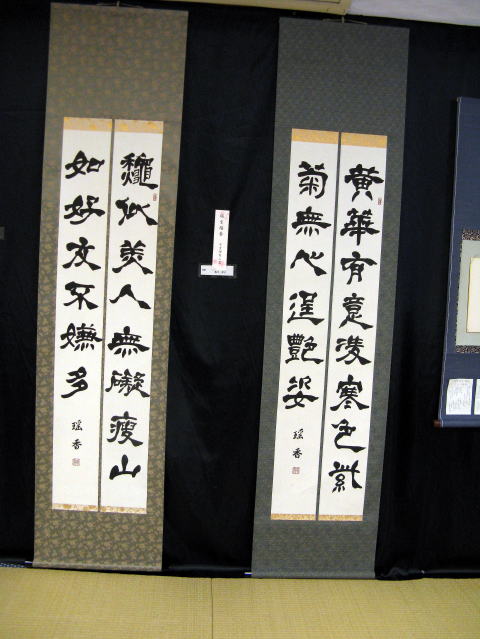 黄華有意凌寒色紫
菊無心逞艷姿
瑶香
龝似美人無礙瘦山
如好友不嫌多
瑶香